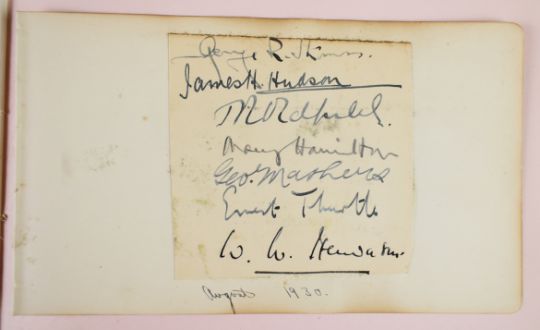 George R. Strauss.
James H. Hudson
Mary Hamilton
Geo. Mathers
Ernest Thurtle
W. W. Henderson
August 1930.